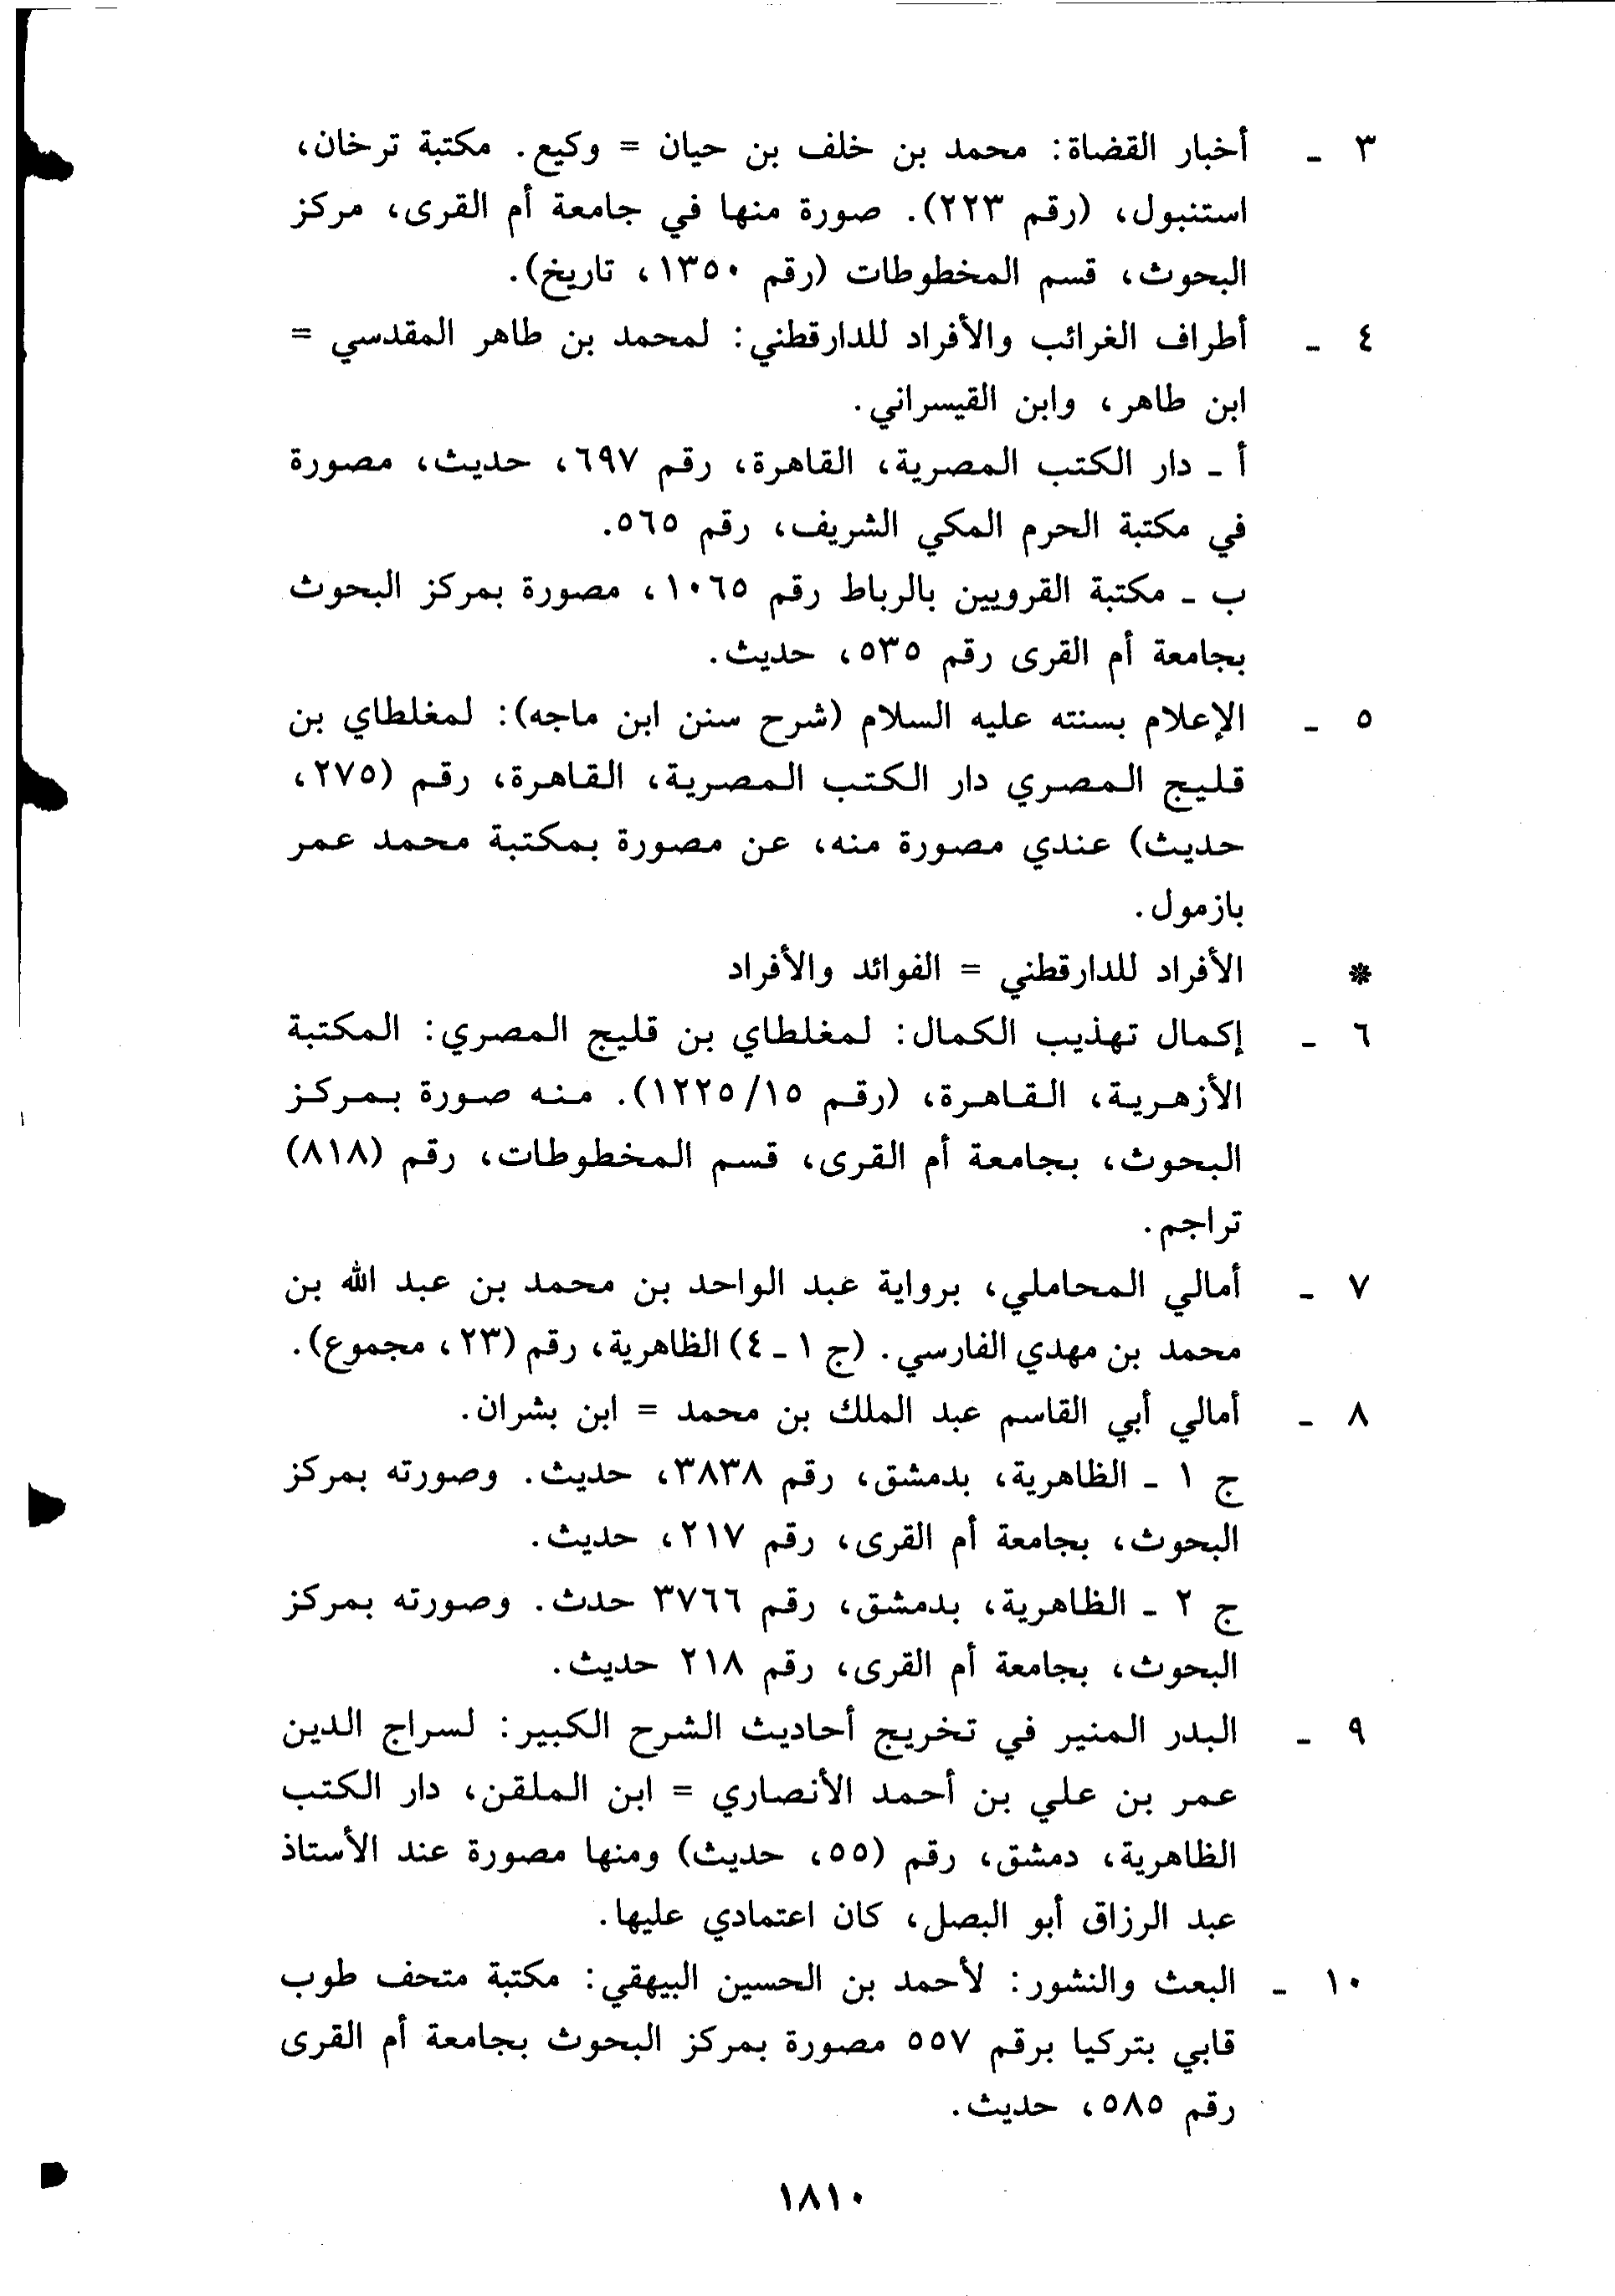 ٣ - أخبار القضاة: محمد بن خلف بن حيان = وكيع. مكتبة ترخان،
استنبول، (رقم ٢٢٣). صورة منها في جامعة أم القرى، مركز
البحوث، قسم المخطوطات (رقم ١٣٥٠، تاريخ).
٤ - أطراف الغرائب والأفراد للدارقطني: لمحمد بن طاهر المقدسي =
ابن طاهر، وابن القيسراني.
أ - دار الكتب المصرية، القاهرة، رقم ٦٩٧، حديث، مصورة
في مكتبة الحرم المكي الشريف، رقم ٥٦٥.
ب - مكتبة القرويين بالرباط رقم ١٠٦٥، مصورة بمركز البحوث
بجامعة أم القرى رقم ٥٣٥، حديث.
٥ - الإعلام بسنته عليه السلام (شرح سنن ابن ماجه): لمغلطاي بن
قليج المصري دار الكتب المصرية، القاهرة، رقم (٢٧٥،
حديث) عندي مصورة منه، عن مصورة بمكتبة محمد عمر
بازمول.
* الأفراد للدارقطني = الفوائد والأفراد
٦ - إكمال تهذيب الكمال: لمغلطاي بن قليج المصري: المكتبة
الأزهرية، القاهرة، (رقم ١٢٢٥/١٥). منه صورة بمركز
البحوث، بجامعة أم القرى، قسم المخطوطات، رقم (٨١٨)
تراجم.
٧ - أمالي المحاملي، برواية عبد الواحد بن محمد بن عبد الله بن
محمد بن مهدي الفارسي. (ج ١ - ٤) الظاهرية، رقم (٢٣، مجموع).
٨ - أمالي أبي القاسم عبد الملك بن محمد = ابن بشران.
ج ١ - الظاهرية، بدمشق، رقم ٣٨٣٨، حديث. وصورته بمركز
البحوث، بجامعة أم القرى، رقم ٢١٧، حديث.
ج ٢ - الظاهرية، بدمشق، رقم ٣٧٦٦ حدث. وصورته بمركز
البحوث، بجامعة أم القرى، رقم ٢١٨ حديث.
٩ - البدر المنير في تخريج أحاديث الشرح الكبير: لسراج الدين
عمر بن علي بن أحمد الأنصاري = ابن الملقن، دار الكتب
الظاهرية، دمشق، رقم (٥٥، حديث) ومنها مصورة عند الأستاذ
عبد الرزاق أبو البصل، كان اعتمادي عليها.
١٠ - البعث والنشور: لأحمد بن الحسين البيهقي: مكتبة متحف طوب
قابي بتركيا برقم ٥٥٧ مصورة بمركز البحوث بجامعة أم القرى
رقم ٥٨٥، حديث.
١٨١٠